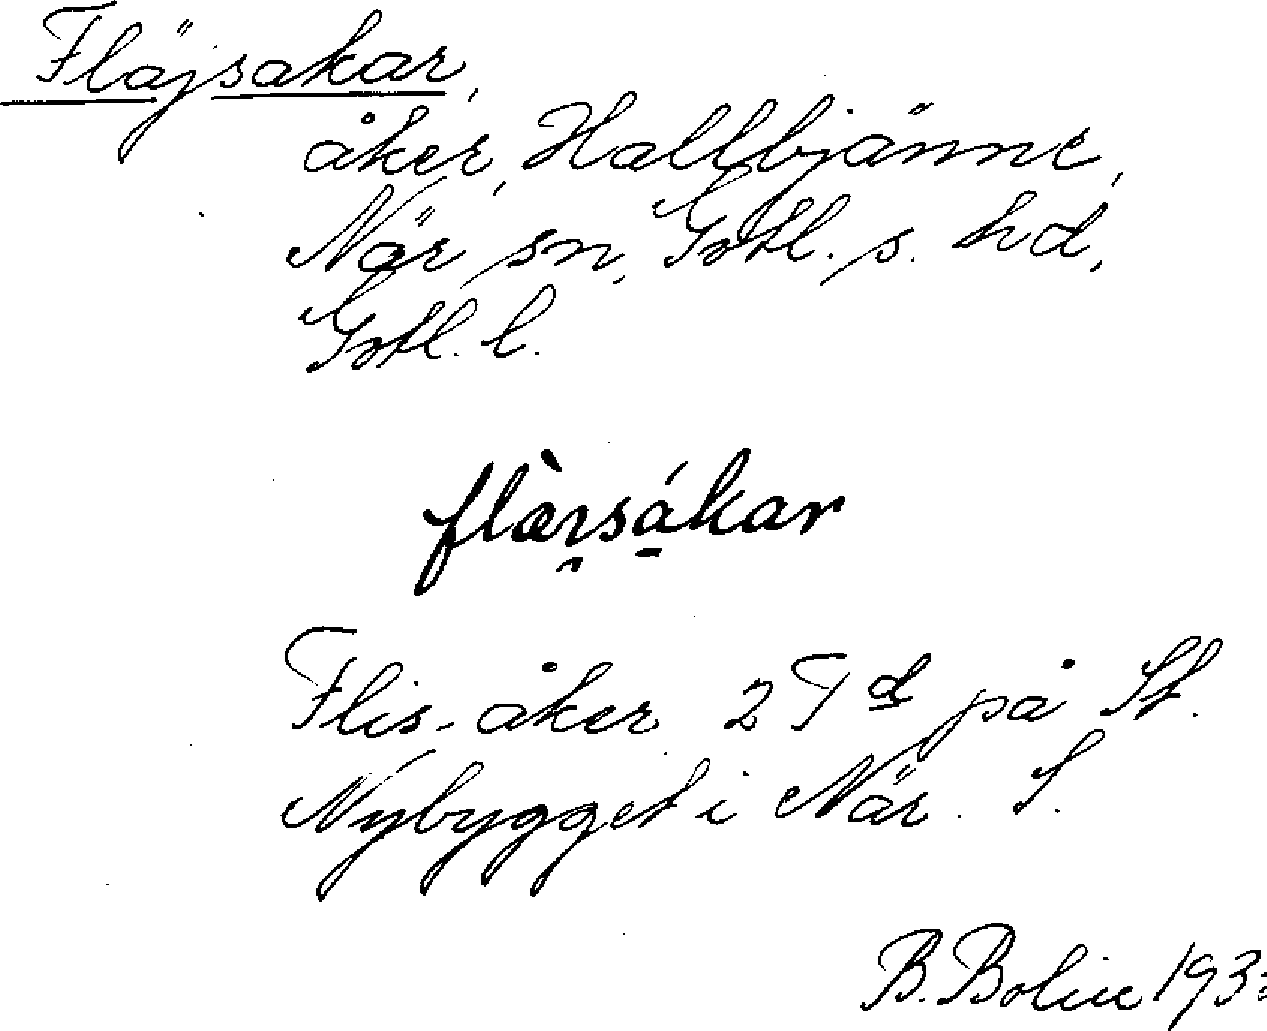 Fläjsakar,
åker, Hallbjänne,
När sn, Gotl. s. hd,
Gotl. l.
flæi̯sákar
Flis-åker 2 Td på St.
Nybygget i När. S.
B. Bolin 193